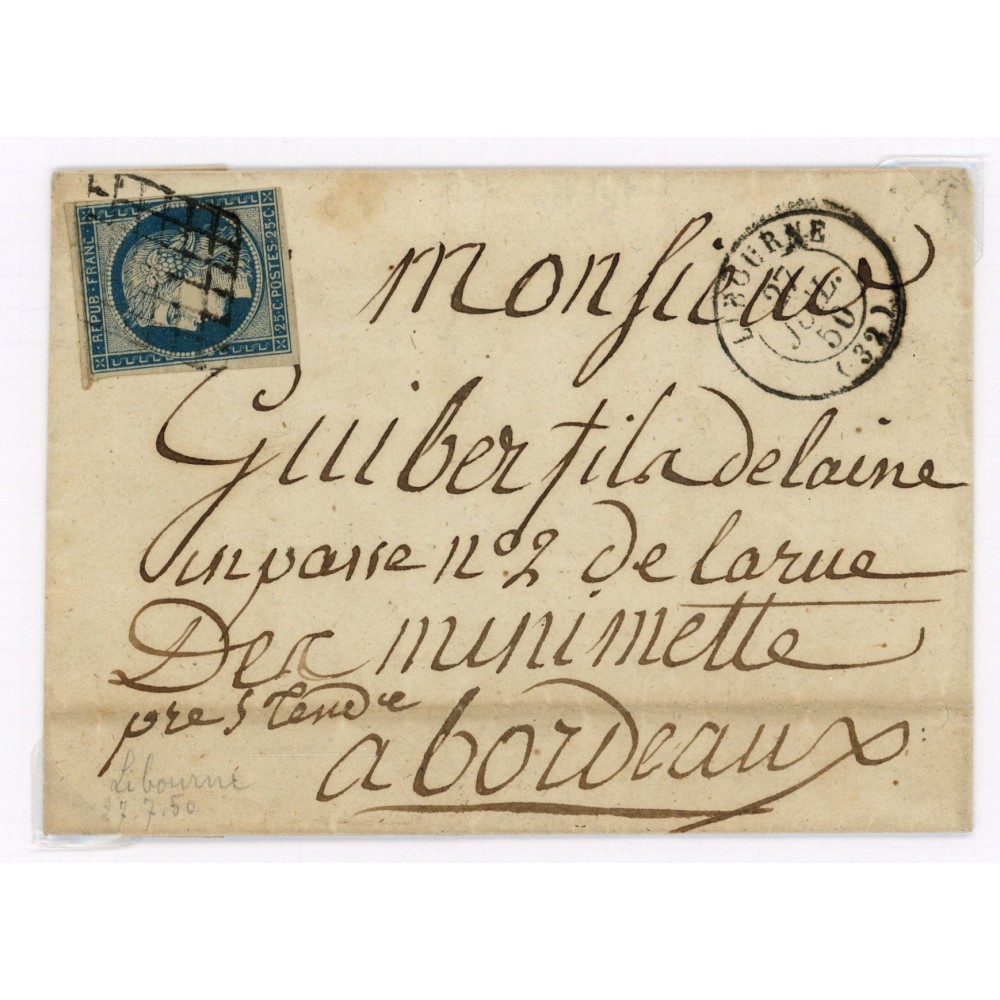 REPUB·FRANC·
25·C·POSTES·25·C·
LIBOURNE
27
JUIL
50
(32)
monsieur
Guiber fils delaine
inpasse n° 2 de larue
Des minimette
pre S
a bordeaux
Libourne
27.7.50